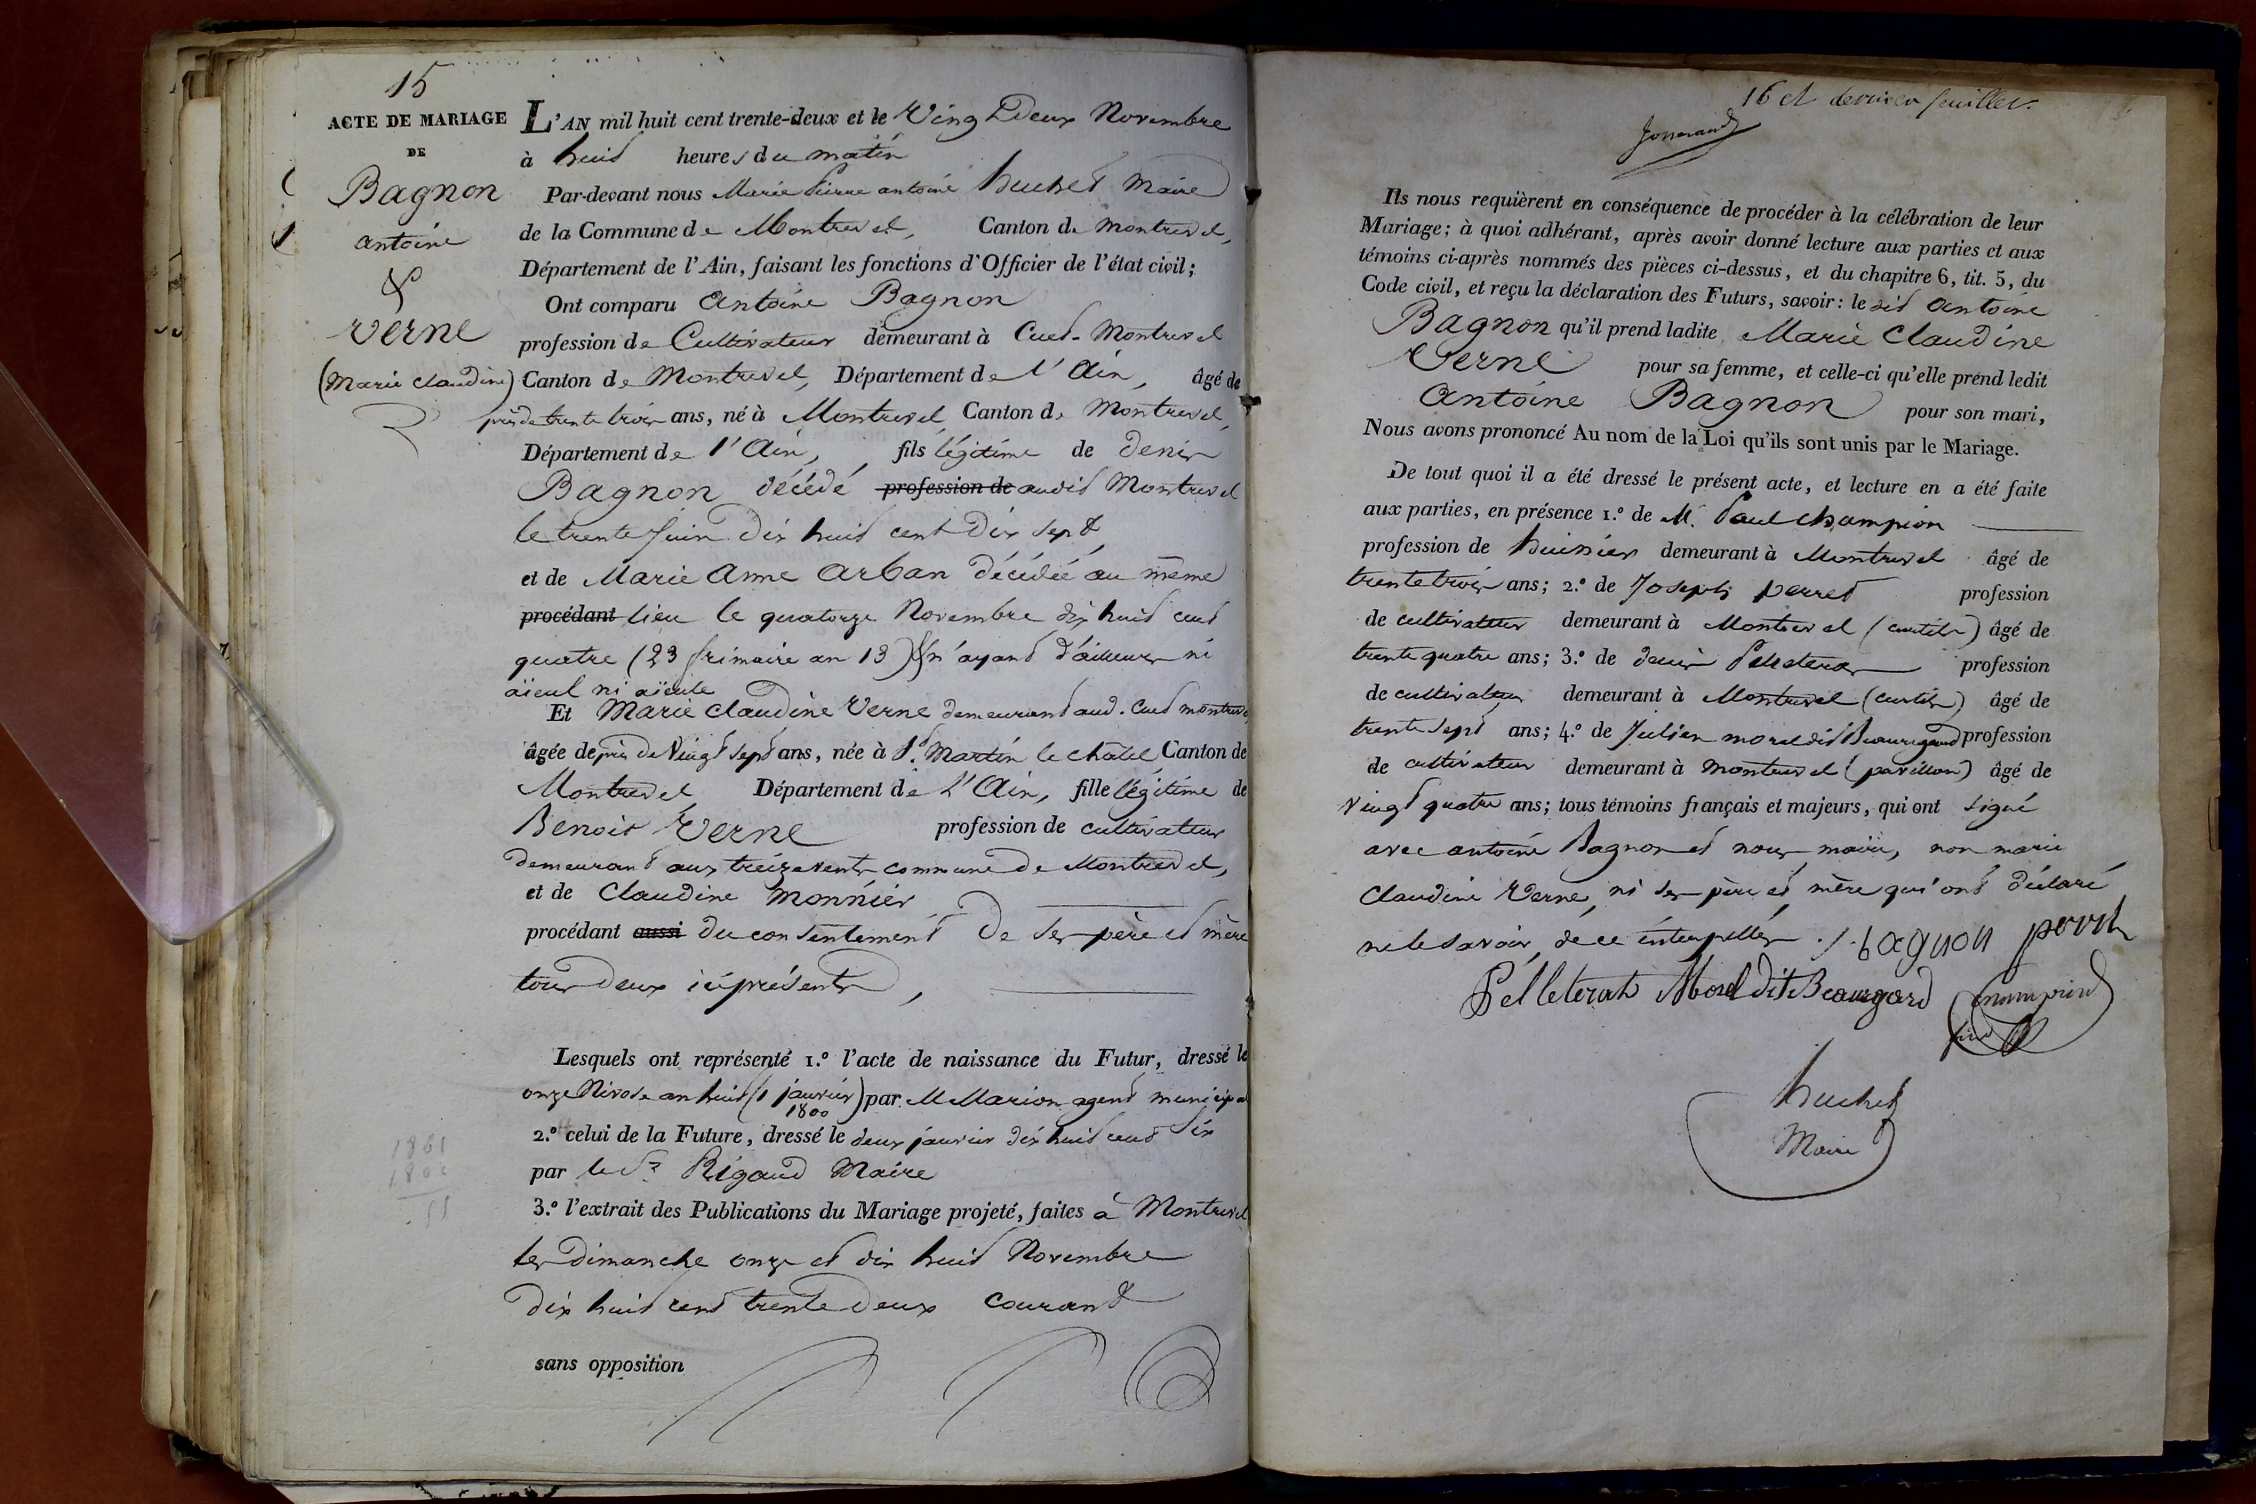 15
ACTE DE MARIAGE
DE
Bagnon
antoine
&
Verne
(Marie claudine)
L'AN mil huit cent trente-deux et le Ving Deux Novembre
à huit heures du matin
Par-devant nous Marie Pierre antoine huchet Maire
de la Commune de Montrevel, Canton de Montrevel,
Département de l'Ain, faisant les fonctions d'Officier de l'état civil;
Ont comparu Antoine Bagnon
profession de Cultivateur demeurant à Cuet-Montrevel
Canton de Montrevel, Département de l'Ain, âgé de
près de trente trois ans, né à Montrevel Canton de Montrevel,
Département de l'Ain, fils légitime de denis
Bagnon décédé profession de audit Montrevel
le trente Juin dix huit cent dix sept,
et de Marie Anne Arban décédée au même
procédant lieu le quatorze Novembre dix huit cent
quatre (23 frimaire an 13) & n'ayant d'ailleurs ni
aïeul ni aïeule
Et Marie claudine Verne demeurant aud. Cuet montrevel
âgée de près de Vingt sept ans, née à St. Martin le chatel Canton de
Montrevel Département de l'Ain, fille légitime de
Benoit Verne profession de cultivateur
demeurant aux treizevents commune de Montrevel,
et de Claudine Monnier
procédant aussi du consentement de ses père et mère
tous deux ici présents,
Lesquels ont représenté 1.º l'acte de naissance du Futur, dressé le
onze Nivose an huit (1 janvier 1800) par M Marion agent municipal
2.º celui de la Future, dressé le deux janvier dix huit cent six
par le Sr. Rigaud Maire
3.º l'extrait des Publications du Mariage projeté, faites à Montrevel
les Dimanche onze et dix huit Novembre
dix huit cent trente deux courant
sans opposition
16 et dernier feuillet.
Ils nous requièrent en conséquence de procéder à la célébration de leur
Mariage; à quoi adhérant, après avoir donné lecture aux parties et aux
témoins ci-après nommés des pièces ci-dessus, et du chapitre 6, tit. 5, du
Code civil, et reçu la déclaration des Futurs, savoir: le dit Antoine
Bagnon qu'il prend ladite Marie Claudine
Verne pour sa femme, et celle-ci qu'elle prend ledit
Antoine Bagnon pour son mari,
Nous avons prononcé Au nom de la Loi qu'ils sont unis par le Mariage.
De tout quoi il a été dressé le présent acte, et lecture en a été faite
aux parties, en présence 1.º de M. Paul champion
profession de huissier demeurant à Montrevel âgé de
trente trois ans; 2.º de Joseph perret profession
de cultivateur demeurant à Montrevel (curtils) âgé de
trente quatre ans; 3.º de denis Pelleterat profession
de cultivateur demeurant à Montrevel (curtils) âgé de
trente sept ans; 4.º de Julien morel dit Beauregard profession
de cultivateur demeurant à Montrevel (pavillon) âgé de
Vingt quatre ans; tous témoins français et majeurs, qui ont signé
avec antoine Bagnon et nous maire, non marie
Claudine Verne, ni ses père et mère qui ont déclaré
ne le savoir, de ce interpellés ./. bagnon perret
Pelleterat Morel dit Beauregard champion
huchet
Maire